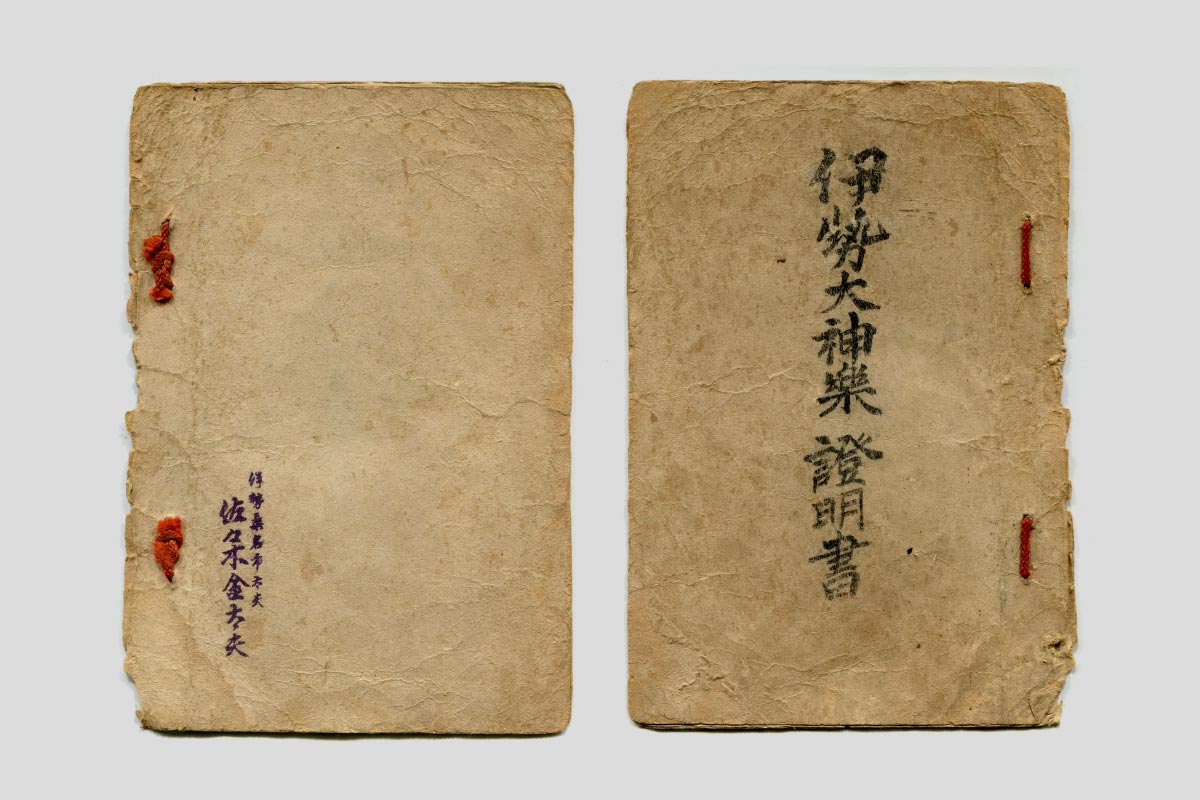 伊勢大神樂 證明書
伊勢桑名市太夫
佐々木金太夫